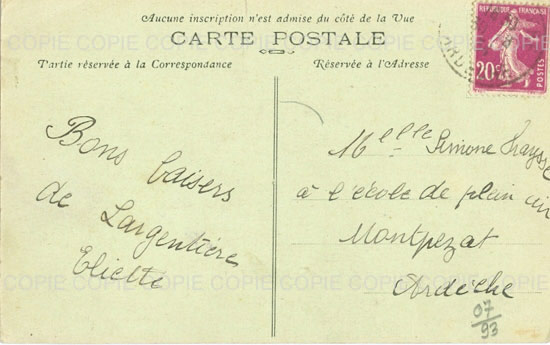 Aucune inscription n'est admise du côté de la Vue
CARTE POSTALE
Partie réservée à la Correspondance
Réservée à l'Adresse
20c
POSTES
Bons baisers
de Largentière
Eliette
Melle Simone
à l'école de plein air
Montpezat
Ardèche
07/93
COPIE COPIE COPIE COPIE COPIE COPIE COPIE COPIE
COPIE COPIE COPIE COPIE COPIE COPIE COPIE COPIE